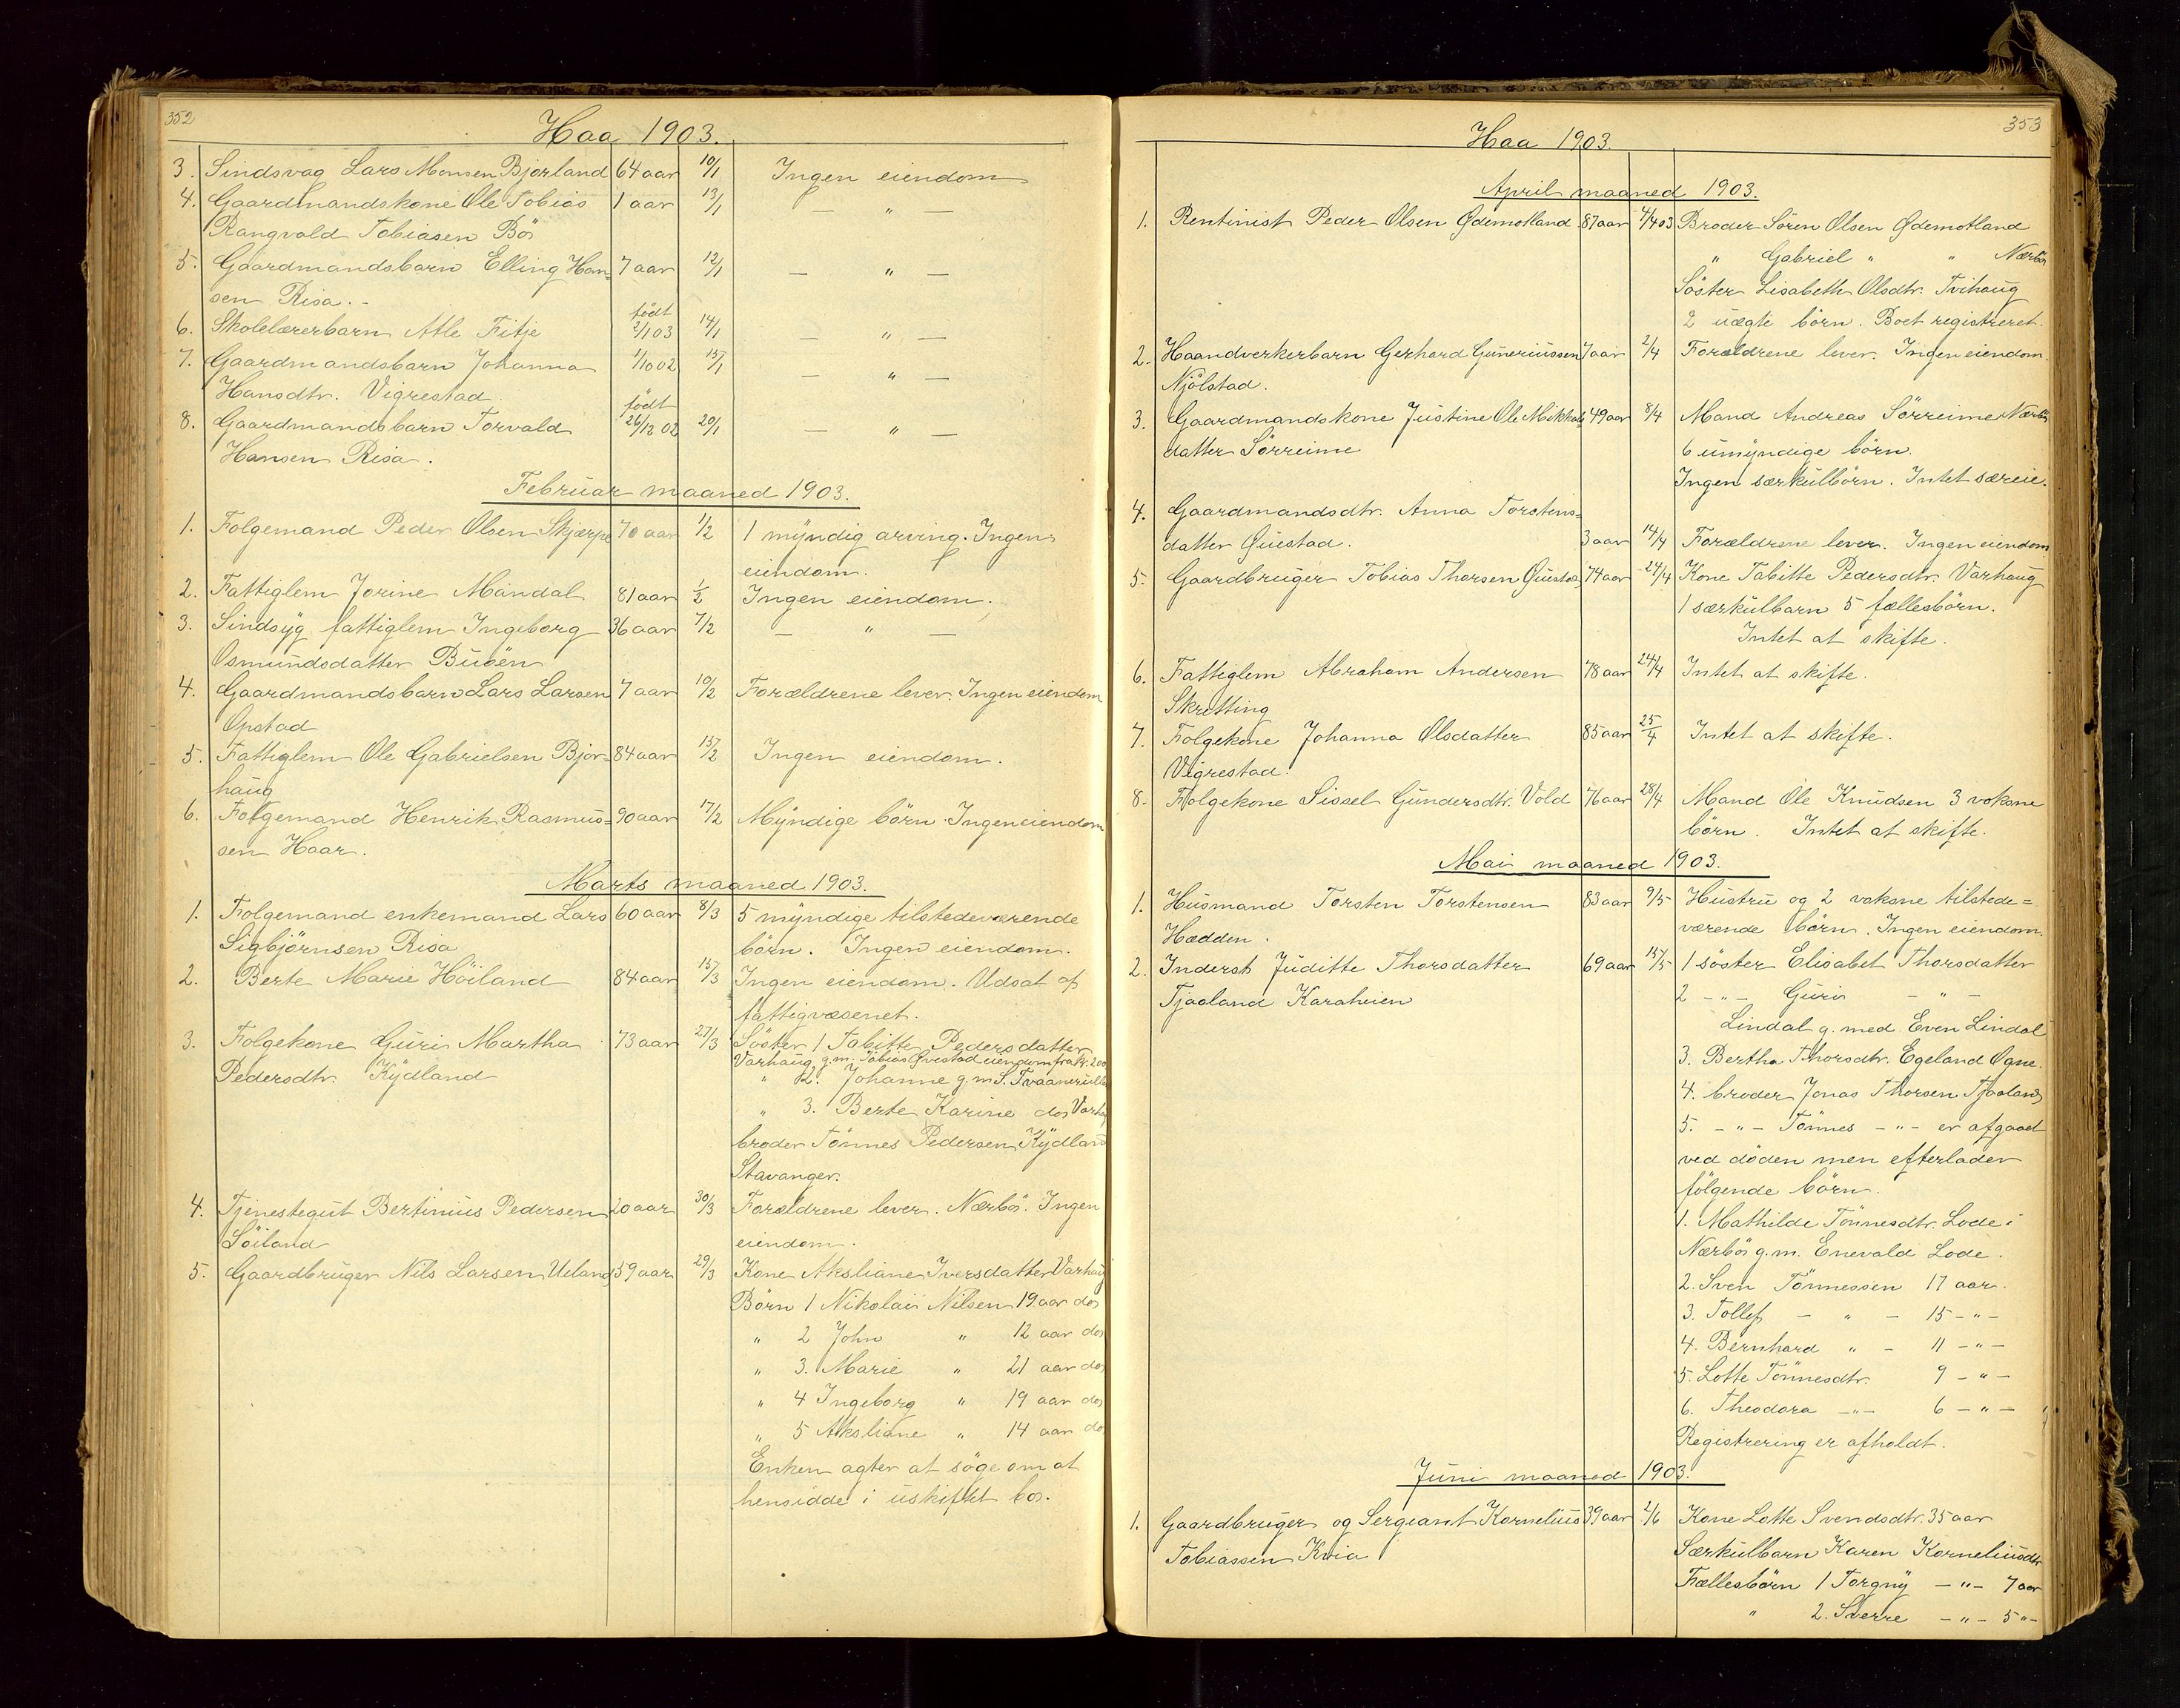 352
Haa 1903.
3. Sindsvag Lars Monsen Bjorland 64 aar 10/1 Ingen eiendom
4. Gaardmandskone Ole Tobias 1 aar 13/1 — " —
Rangvald Tobiasen Bö
5. Gaardmandsbarn Elling Han= 7 aar 12/1 — " —
sen Risa. -
født
6. Skolelærerbarn Atle Fitje 2/1 03 14/1 — " —
7. Gaardmandsbarn Johanna 1/10 02 15/1 — " —
Hansdtr. Vigrestad
født
8. Gaardmandsbarn Torvald 26/12 02 20/1 — " —
Hansen Risa.
Februar maaned 1903.
1. Folgemand Peder Olsen Skjærpe 70 aar 1/2 1 myndig arving. Ingen
eiendom.
2. Fattiglem Jorine Mandal 81 aar 1/2 Ingen eiendom.
3. Sindsyg fattiglem Ingeborg 36 aar 7/2 — " —
Osmundsdatter Buöen
4. Gaardmandsbarn Lars Larsen 7 aar 10/2 Forældrene lever. Ingen eiendom
Opstad
5. Fattiglem Ole Gabrielsen Bjor= 84 aar 15/2 Ingen eiendom.
haug
6. Folgemand Henrik Rasmus= 90 aar 17/2 Myndige börn. Ingen eiendom
sen Haar.
Marts maaned 1903.
1. Folgemand enkemand Lars 60 aar 8/3 5 myndige tilstedeværende
Sigbjörnsen Risa börn. Ingen eiendom.
2. Berte Marie Höiland 84 aar 15/3 Ingen eiendom. Udsat af
fattigvæsenet.
3. Folgekone Guri Martha 73 aar 27/3 Söster 1 Tabitte Pedersdatter
Varhaug g.m. Tobias Øvestad eiendom fra kr. 200
Pedersdtr. Kydland " 2. Johanne g.m. S. Tvaanerud
" 3. Berte Karine do Varh
broder Tönnes Pedersen Kydland
Stavanger.
4. Tjenestegut Bertinius Pedersen 20 aar 30/3 Forældrene lever. Nærbö. Ingen
Söiland eiendom.
5. Gaardbruger Nils Larsen Ueland 59 aar 29/3 Kone Aksliane Iversdatter Varhaug
Börn 1 Nikolai Nilsen 19 aar do
" 2 John " 12 aar do
" 3. Marie " 21 aar do
" 4 Ingeborg " 19 aar do
" 5 Aksliane " 14 aar do
Enken agter at söge om at
hensidde i uskiftet bo.
353
Haa 1903.
April maaned 1903.
1. Rentinist Peder Olsen Ødemotland 87 aar 4/4 03 Broder Sören Olsen Ødemotland
" Gabriel " " Nærbö
Söster Lisabeth Olsdtr. Tvihaug
2 uægte börn. Boet registreret.
2. Haandverkerbarn Gerhard Guneriussen 7 aar 2/4 Forældrene lever. Ingen eiendom.
Njölstad.
3. Gaardmandskone Justine Ole Mikkals 49 aar 8/4 Mand Andreas Sörreime Nærbö
datter Sörreime 6 umyndige börn.
Ingen særkulbörn. Intet særeie.
4. Gaardmandsdtr. Anna Torstens=
datter Øuestad. 3 aar 14/4 Forældrene lever. Ingen eiendom
5. Gaardbruger Tobias Thorsen Øuestad 74 aar 24/4 Kone Tabitte Pedersdtr. Varhaug
1 særkulbarn 5 fællesbörn.
Intet at skifte.
6. Fattiglem Abraham Andersen 78 aar 24/4 Intet at skifte.
Skretting
7. Folgekone Johanna Olsdatter 85 aar 25/4 Intet at skifte.
Vigrestad.
8. Folgekone Sissel Gundersdtr. Vold 76 aar 28/4 Mand Ole Knudsen 3 voksne
börn. Intet at skifte.
Mai maaned 1903.
1. Husmand Torsten Torstensen 83 aar 9/5 Hustru og 2 voksne tilstede=
Hædden. værende börn. Ingen eiendom.
2. Inderst Juditte Thorsdatter 69 aar 15/5 1 söster Elisabet Thorsdatter
Tjaaland Karaheien 2 - " - Guri - " -
Lindal g. med Even Lindal
3. Bertha Thorsdtr. Egeland Ogne.
4. broder Jonas Thorsen Tjaaland
5. - " - Tönnes - " - er afgaaet
ved döden men efterlader
fölgende börn.
1. Mathilde Tönnesdtr. Lode i
Nærbö g.m. Enevald Lode.
2. Sven Tönnessen 17 aar.
3. Tollef - " - 15 - " -
4. Bernhard " - 11 - " -
5. Lotte Tönnesdtr. 9 - " -
6. Theodora - " - 6 - " -
Registrering er afholdt.
Juni maaned 1903.
1. Gaardbruger og Sergeant Kornelius 39 aar 2/6 Kone Lotte Svendsdtr. 35 aar
Tobiassen Kvia Særkulbarn Karen Korneliusdtr
Fællesbörn 1 Torgny - " - 7 aar
" 2. Sverre - " - 5 " -